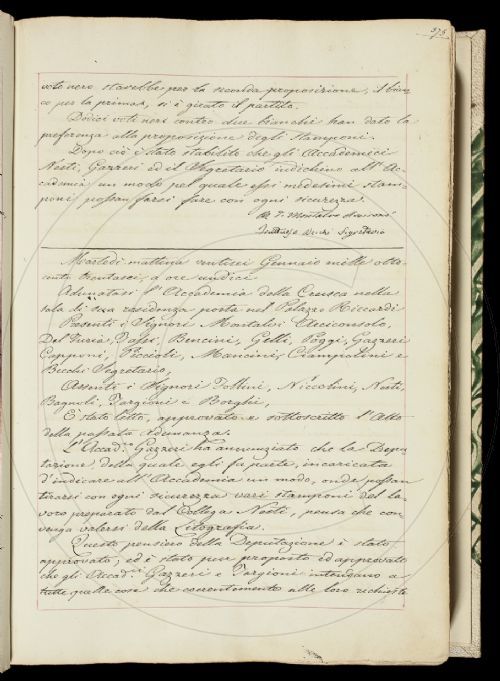 375
voto nero starebbe per la seconda proposizione, il bian
co per la prima, si è girato il partito.
Dodici voti neri contro due bianchi han dato la
preferenza alla proposizione degli stamponi.
Dopo ciò è stato stabilito che gli Accademici
Nesti, Gazzeri ed il Segretario indichino all'Ac-
cademia un modo pel quale essi medesimi stam-
poni possan farsi fare con ogni sicurezza.
Segretario
Martedì mattina ventisei Gennaio mille otto-
cento trentasei, a ore undici
Adunatasi l'Accademia della Crusca nelle
sala di sua residenza posta nel Palazzo Riccardi
Presenti i Signori Montalvi Arciconsolo,
Del Furia, Bencini, Gelli, Poggi, Gazzeri
Capponi, Piccioli, Mancini, Ciampolini e
Becchi Segretario,
Assenti i Signori Follini, Niccolini, Nesti,
Bagnoli, Targioni e Borghi,
È stato letto, approvato e sottoscritto l'Atto
della passata Adunanza.
L'Accad.co Gazzeri ha annunziato che la Depu
tazione, della quale egli fa parte, incaricata
d'indicare all'Accademia un modo, onde possan
tirarsi con ogni sicurezza vari stamponi del la-
voro preparato dal Collega Nesti, pensa che con
venga valersi della Litografia.
Questo pensiero della Deputazione è stato
approvato; ed è stato pure proposto ed approvato
che gli Accad.ci Gazzeri e Targioni intendano a
tutte quelle cose che coerentemente alle loro richieste